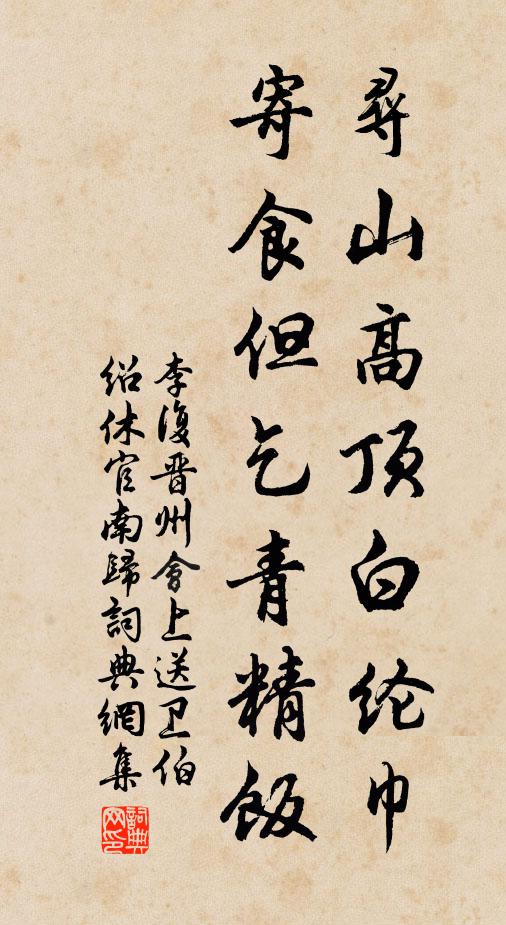 尋山高顶白纶巾
寄食但乞青精飯
李復晋州會上送卫伯
绍休官南歸詞典網集
詞典网印